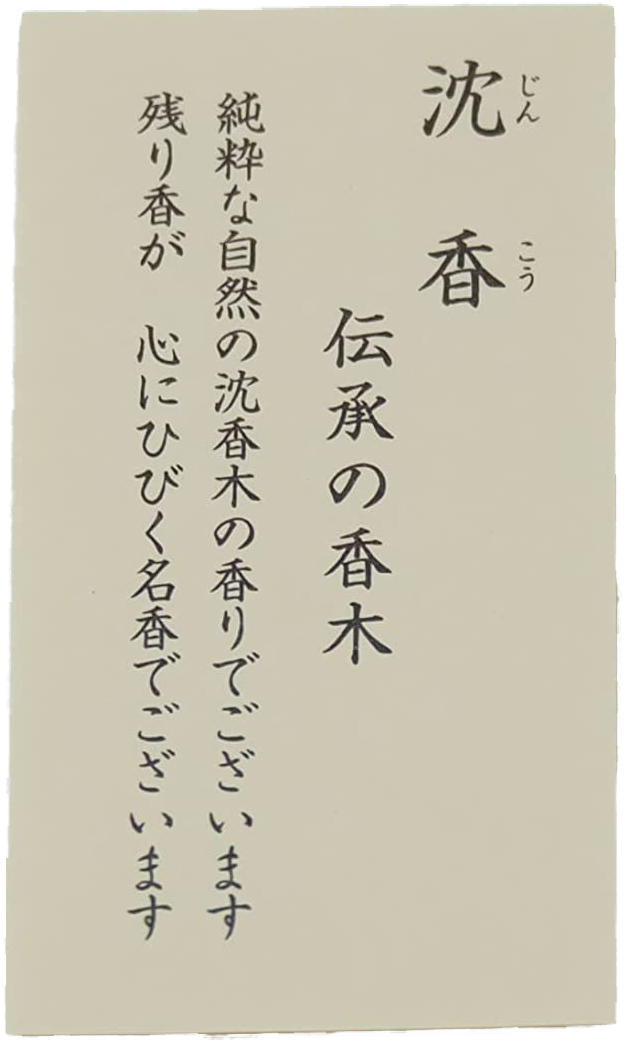 沈香
じんこう
伝承の香木
純粋な自然の沈香木の香りでございます
残り香が　心にひびく名香でございます